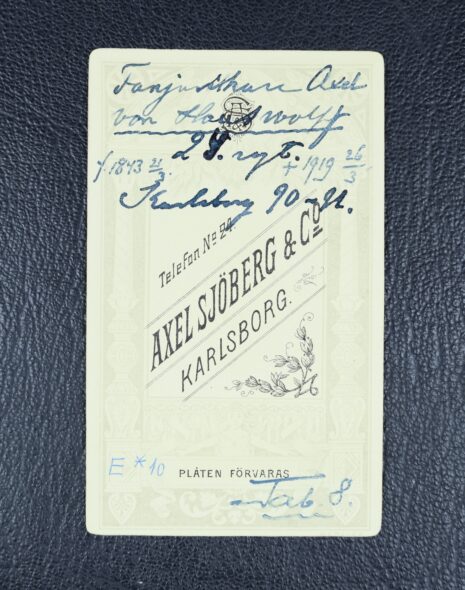 Fanjunkare Axel
von Hauswolff
24. ryt.
f 1843 21/3. † 1919 26/3
Karlsborg 90-91.
Telefon No 24.
AXEL SJÖBERG & Co
KARLSBORG.
E * 10
PLÅTEN FÖRVARAS
Tab 8.